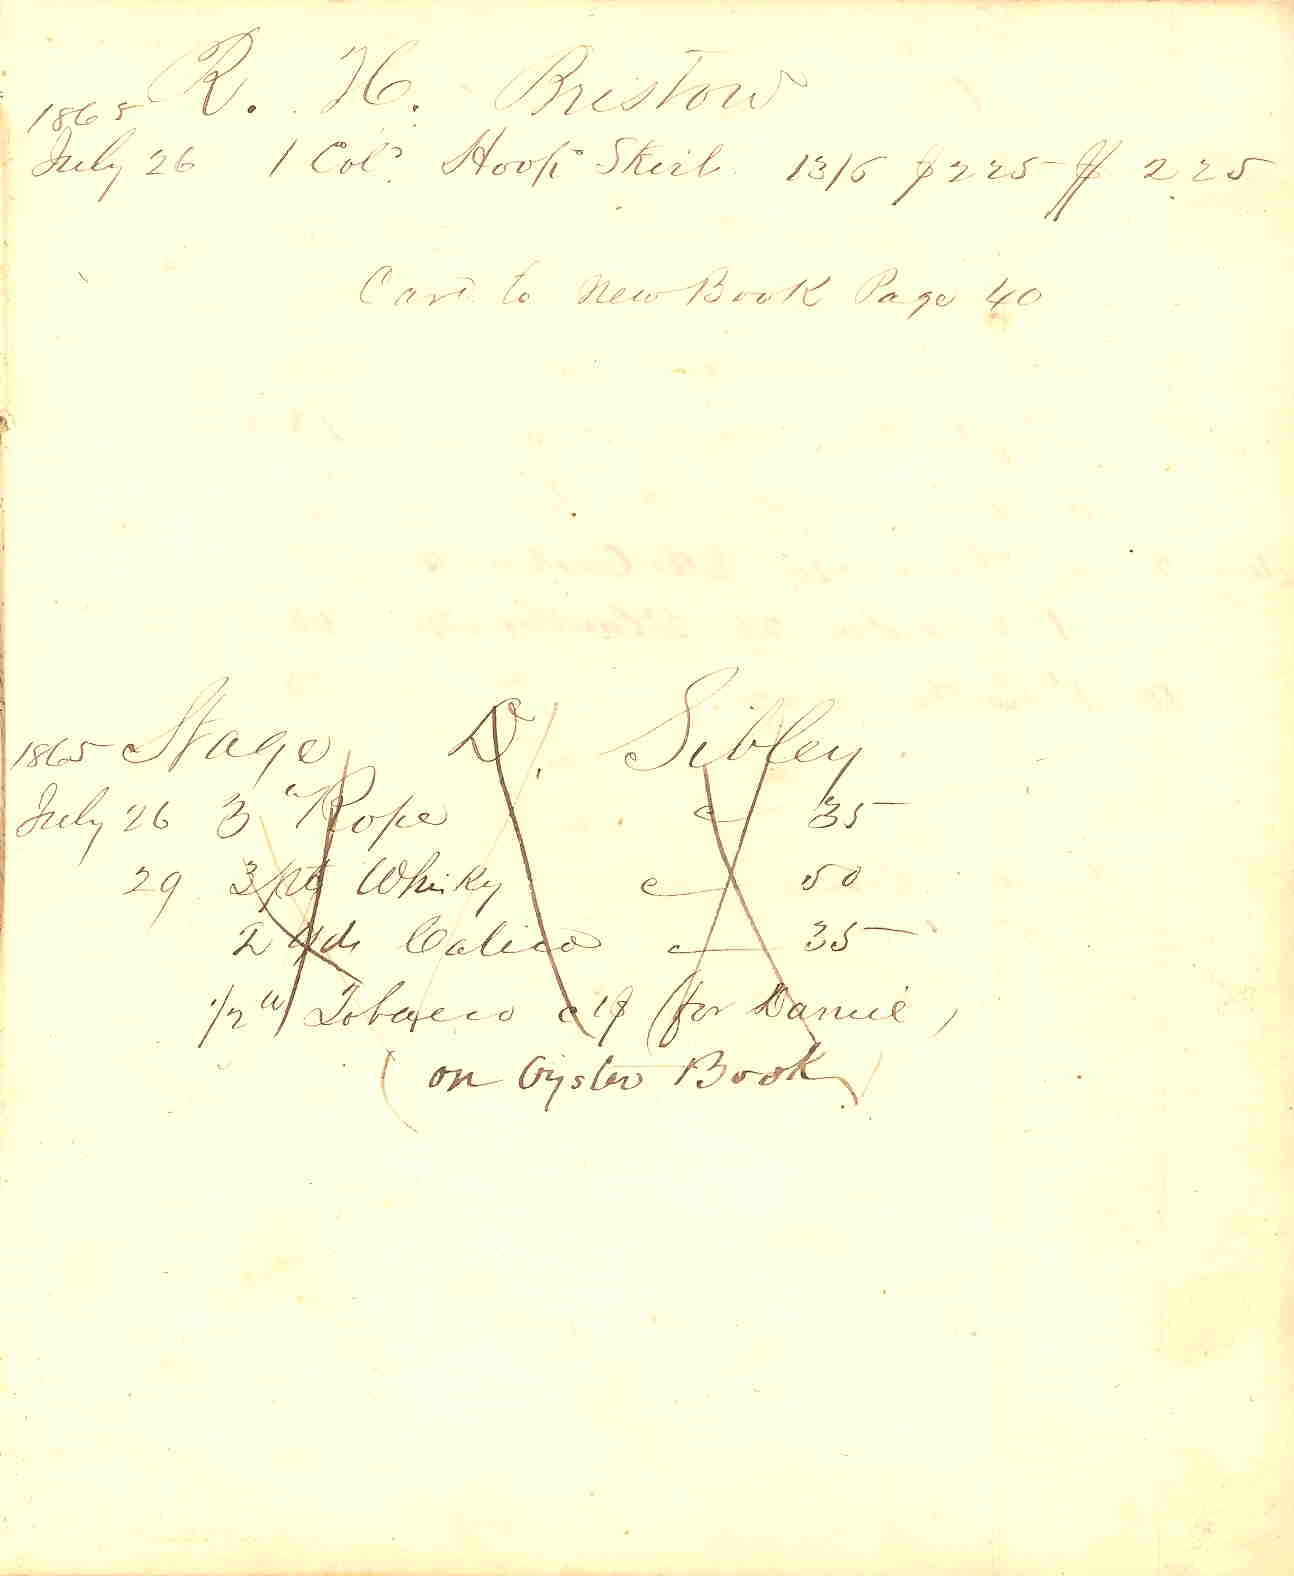 R. H. Bristow
1865
July 26 1 Col'd Hoop Skirt 13/6 $2 25 $ 2 25
Card to New Book Page 40
1865 Stage D. Sibley
July 26 3 " Rope c 35
29 3 pts Whisky c 50
2 yds Calico c 35
1/2 " Tobacco (for Daniel)
(on Oyster Book)